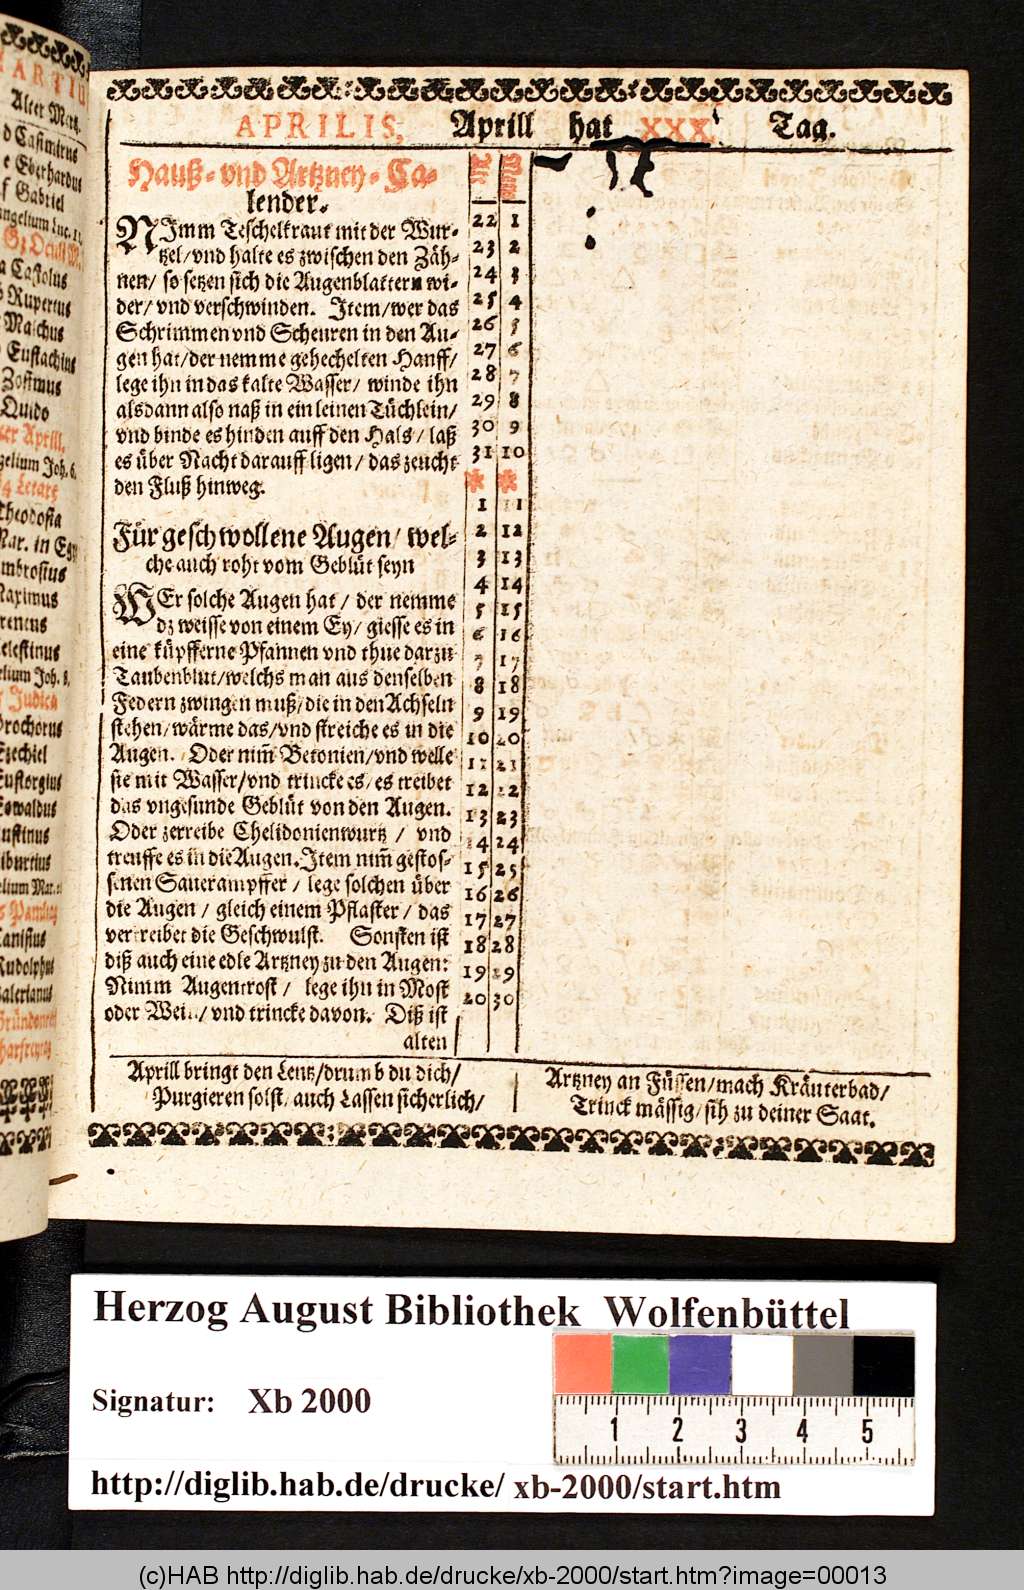 MARTIU
Alter Mertz.
d Casimirus
e Eberhardus
f Gabriel
angelium Luc. 11.
G3 Oculi M.
a Castolus
b Rupertus
Maschus
Eustachius
Zosimus
Quido
ter Aprill.
gelium Joh. 6.
4 Letare
Theodosia
Mar. in Egy
Ambrosius
Maximus
reneus
elestinus
elium Joh. 8.
Judica
Prochorus
Ezechiel
Eustorgius
Eowaldus
ustinus
iburtius
elium Mat. 21
Palmtag
Canisius
Rudolphus
alerianus
Gründoners
Charfreytag
APRILIS, Aprill hat XXX. Tag.
Hauß- vnd Artzney- Ca-
lender.
NImm Teschelkraut mit der Wur-
tzel/vnd halte es zwischen den Zäh-
nen/ so setzen sich die Augenblattern wi-
der/ vnd verschwinden. Item/wer das
Schrimmen vnd Scheuren in den Au-
gen hat/der nemme gehechelten Hanff/
lege ihn in das kalte Wasser/ winde ihn
alsdann also naß in ein leinen Tüchlein/
vnd binde es hinden auff den Hals/ laß
es über Nacht darauff ligen/ das zeucht
den Fluß hinweg.
Für geschwollene Augen/ wel-
che auch roht vom Geblüt seyn
WEr solche Augen hat / der nemme
dz weisse von einem Ey/ giesse es in
eine küpfferne Pfannen vnd thue darzu
Taubenblut/welchs man aus denselben
Federn zwingen muß/die in den Achseln
stehen/wärme das/vnd streiche es in die
Augen. Oder nim̃ Betonien/vnd welle
sie mit Wasser/vnd trincke es/ es treibet
das vngesunde Geblüt von den Augen.
Oder zerreibe Chelidonienwurtz / vnd
treuffe es in die Augen. Item nim̃ gestos-
senen Sauerampffer / lege solchen über
die Augen / gleich einem Pflaster / das
vertreibet die Geschwulst. Sonsten ist
diß auch eine edle Artzney zu den Augen:
Nimm Augentrost / lege ihn in Most
oder Wein/ vnd trincke davon. Diß ist
alten
22 1
23 2
24 3
25 4
26 5
27 6
28 7
29 8
30 9
31 10
1 11
2 12
3 13
4 14
5 15
6 16
7 17
8 18
9 19
10 20
11 21
12 22
13 23
14 24
15 25
16 26
17 27
18 28
19 29
20 30
Aprill bringt den Lentz/drumb du dich/
Purgieren solst/ auch Lassen sicherlich/
Artzney an Füssen/mach Kräuterbad/
Trinck mässig/ sih zu deiner Saat.
Herzog August Bibliothek Wolfenbüttel
Signatur: Xb 2000
1 2 3 4 5
http://diglib.hab.de/drucke/ xb-2000/start.htm
(c)HAB http://diglib.hab.de/drucke/xb-2000/start.htm?image=00013